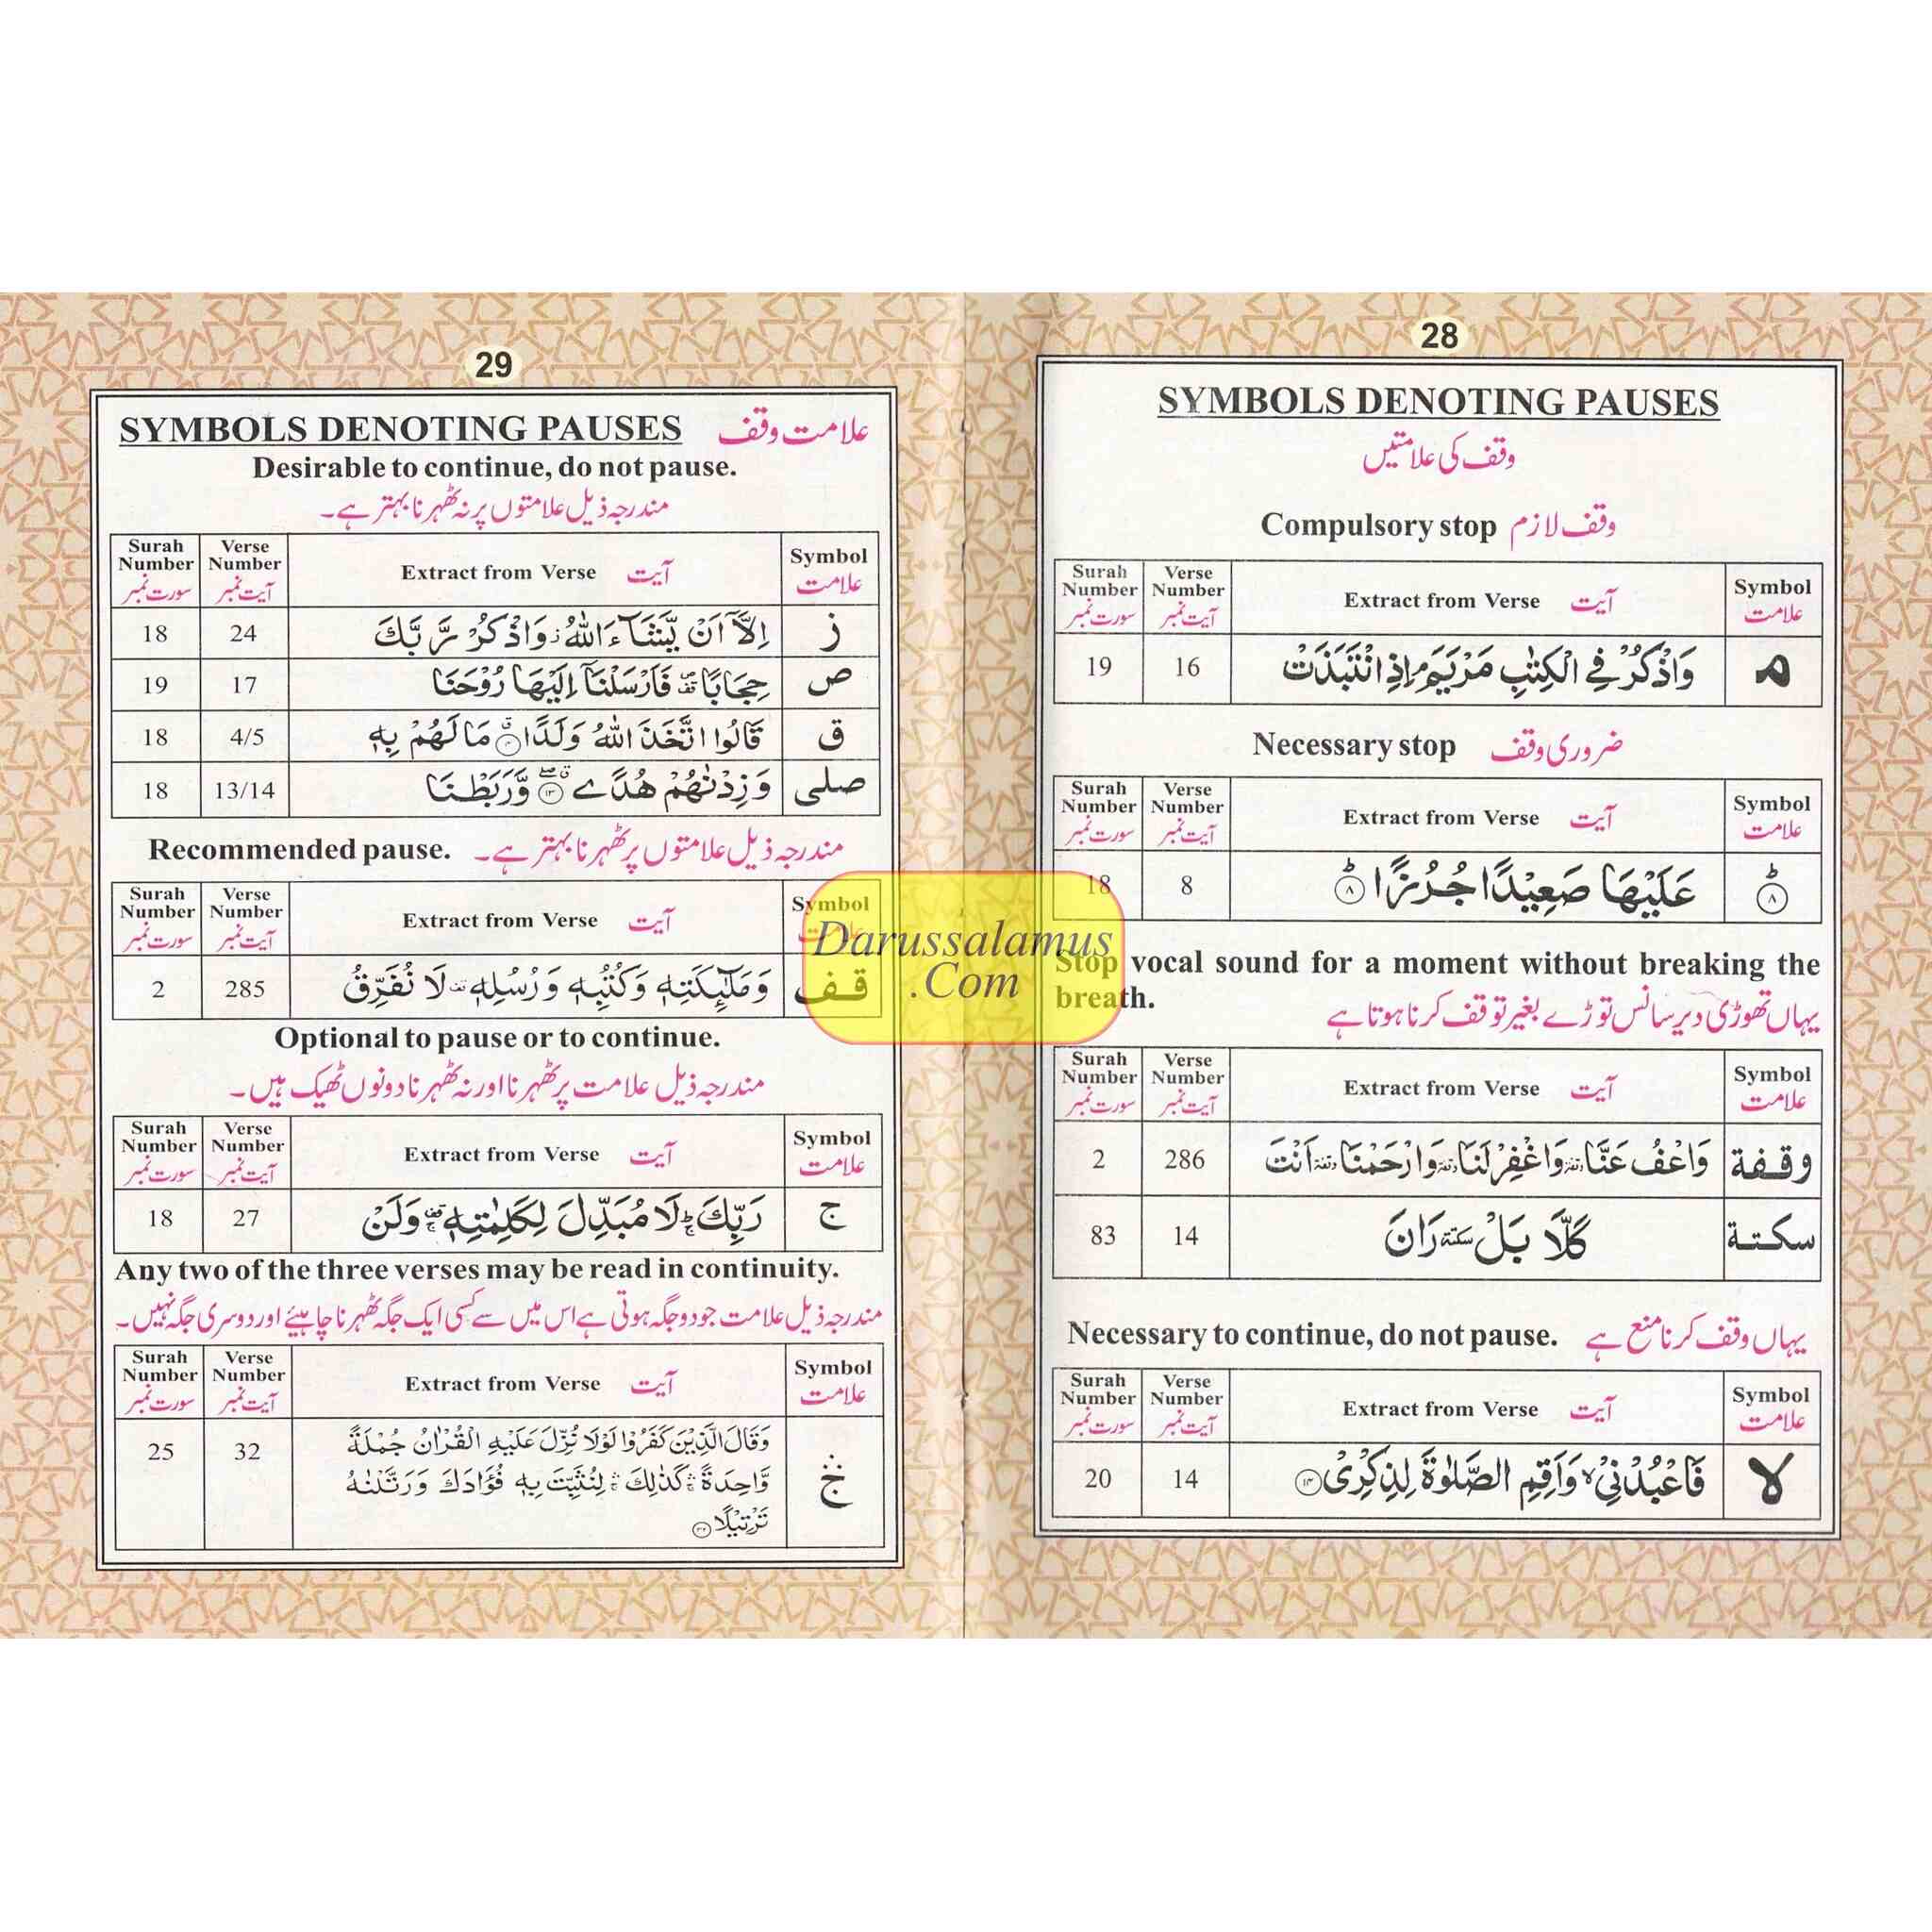 28
SYMBOLS DENOTING PAUSES
وقف کی علامتیں
Compulsory stop وقف لازم
Surah Number سورت نمبر Verse Number آیت نمبر Extract from Verse آیت Symbol علامت
19 16 وَاذْكُرْ فِي الْكِتٰبِ مَرْيَمَ ۘ اِذِ انْتَبَذَتْ مـ
Necessary stop ضروری وقف
Surah Number سورت نمبر Verse Number آیت نمبر Extract from Verse آیت Symbol علامت
18 8 عَلَيْهَا صَعِيْدًا جُرُزًا ؕ۸ ؕ۸
Stop vocal sound for a moment without breaking the
breath.
یہاں تھوڑی دیر سانس توڑے بغیر توقف کرنا ہوتا ہے
Surah Number سورت نمبر Verse Number آیت نمبر Extract from Verse آیت Symbol علامت
2 286 وَاعْفُ عَنَّا وقفة وَاغْفِرْ لَنَا وقفة وَارْحَمْنَا وقفة اَنْتَ وقفة
83 14 كَلَّا بَلْ سكتة رَانَ سكتة
Necessary to continue, do not pause. یہاں وقف کرنا منع ہے
Surah Number سورت نمبر Verse Number آیت نمبر Extract from Verse آیت Symbol علامت
20 14 فَاعْبُدْنِيْ ۙ وَاَقِمِ الصَّلٰوةَ لِذِكْرِيْ ۱۴ لا
29
SYMBOLS DENOTING PAUSES علامت وقف
Desirable to continue, do not pause.
مندرجہ ذیل علامتوں پر نہ ٹھہرنا بہتر ہے۔
Surah Number سورت نمبر Verse Number آیت نمبر Extract from Verse آیت Symbol علامت
18 24 اِلَّآ اَنْ يَّشَآءَ اللّٰهُ ز وَاذْكُرْ رَّبَّكَ ز
19 17 حِجَابًا قف فَاَرْسَلْنَآ اِلَيْهَا رُوْحَنَا ص
18 4/5 قَالُوا اتَّخَذَ اللّٰهُ وَلَدًا ق ۴ مَا لَهُمْ بِهٖ ق
18 13/14 وَزِدْنٰهُمْ هُدًى ۱۳ وَّرَبَطْنَا صلی
Recommended pause. مندرجہ ذیل علامتوں پر ٹھہرنا بہتر ہے۔
Surah Number سورت نمبر Verse Number آیت نمبر Extract from Verse آیت Symbol علامت
2 285 وَمَلٰٓئِكَتِهٖ وَكُتُبِهٖ وَرُسُلِهٖ قف لَا نُفَرِّقُ قف
Optional to pause or to continue.
مندرجہ ذیل علامت پر ٹھہرنا اور نہ ٹھہرنا دونوں ٹھیک ہیں۔
Surah Number سورت نمبر Verse Number آیت نمبر Extract from Verse آیت Symbol علامت
18 27 رَبِّكَ ج لَا مُبَدِّلَ لِكَلِمٰتِهٖ وَلَنْ ج
Any two of the three verses may be read in continuity.
مندرجہ ذیل علامت جو دو جگہ ہوتی ہے اس میں سے کسی ایک جگہ ٹھہرنا چاہیئے اور دوسری جگہ نہیں۔
Surah Number سورت نمبر Verse Number آیت نمبر Extract from Verse آیت Symbol علامت
25 32 وَقَالَ الَّذِيْنَ كَفَرُوْا لَوْلَا نُزِّلَ عَلَيْهِ الْقُرْاٰنُ جُمْلَةً
وَّاحِدَةً ۛ كَذٰلِكَ ۛ لِنُثَبِّتَ بِهٖ فُؤَادَكَ وَرَتَّلْنٰهُ
تَرْتِيْلًا ۳۲ ۛج
Darussalamus
.Com